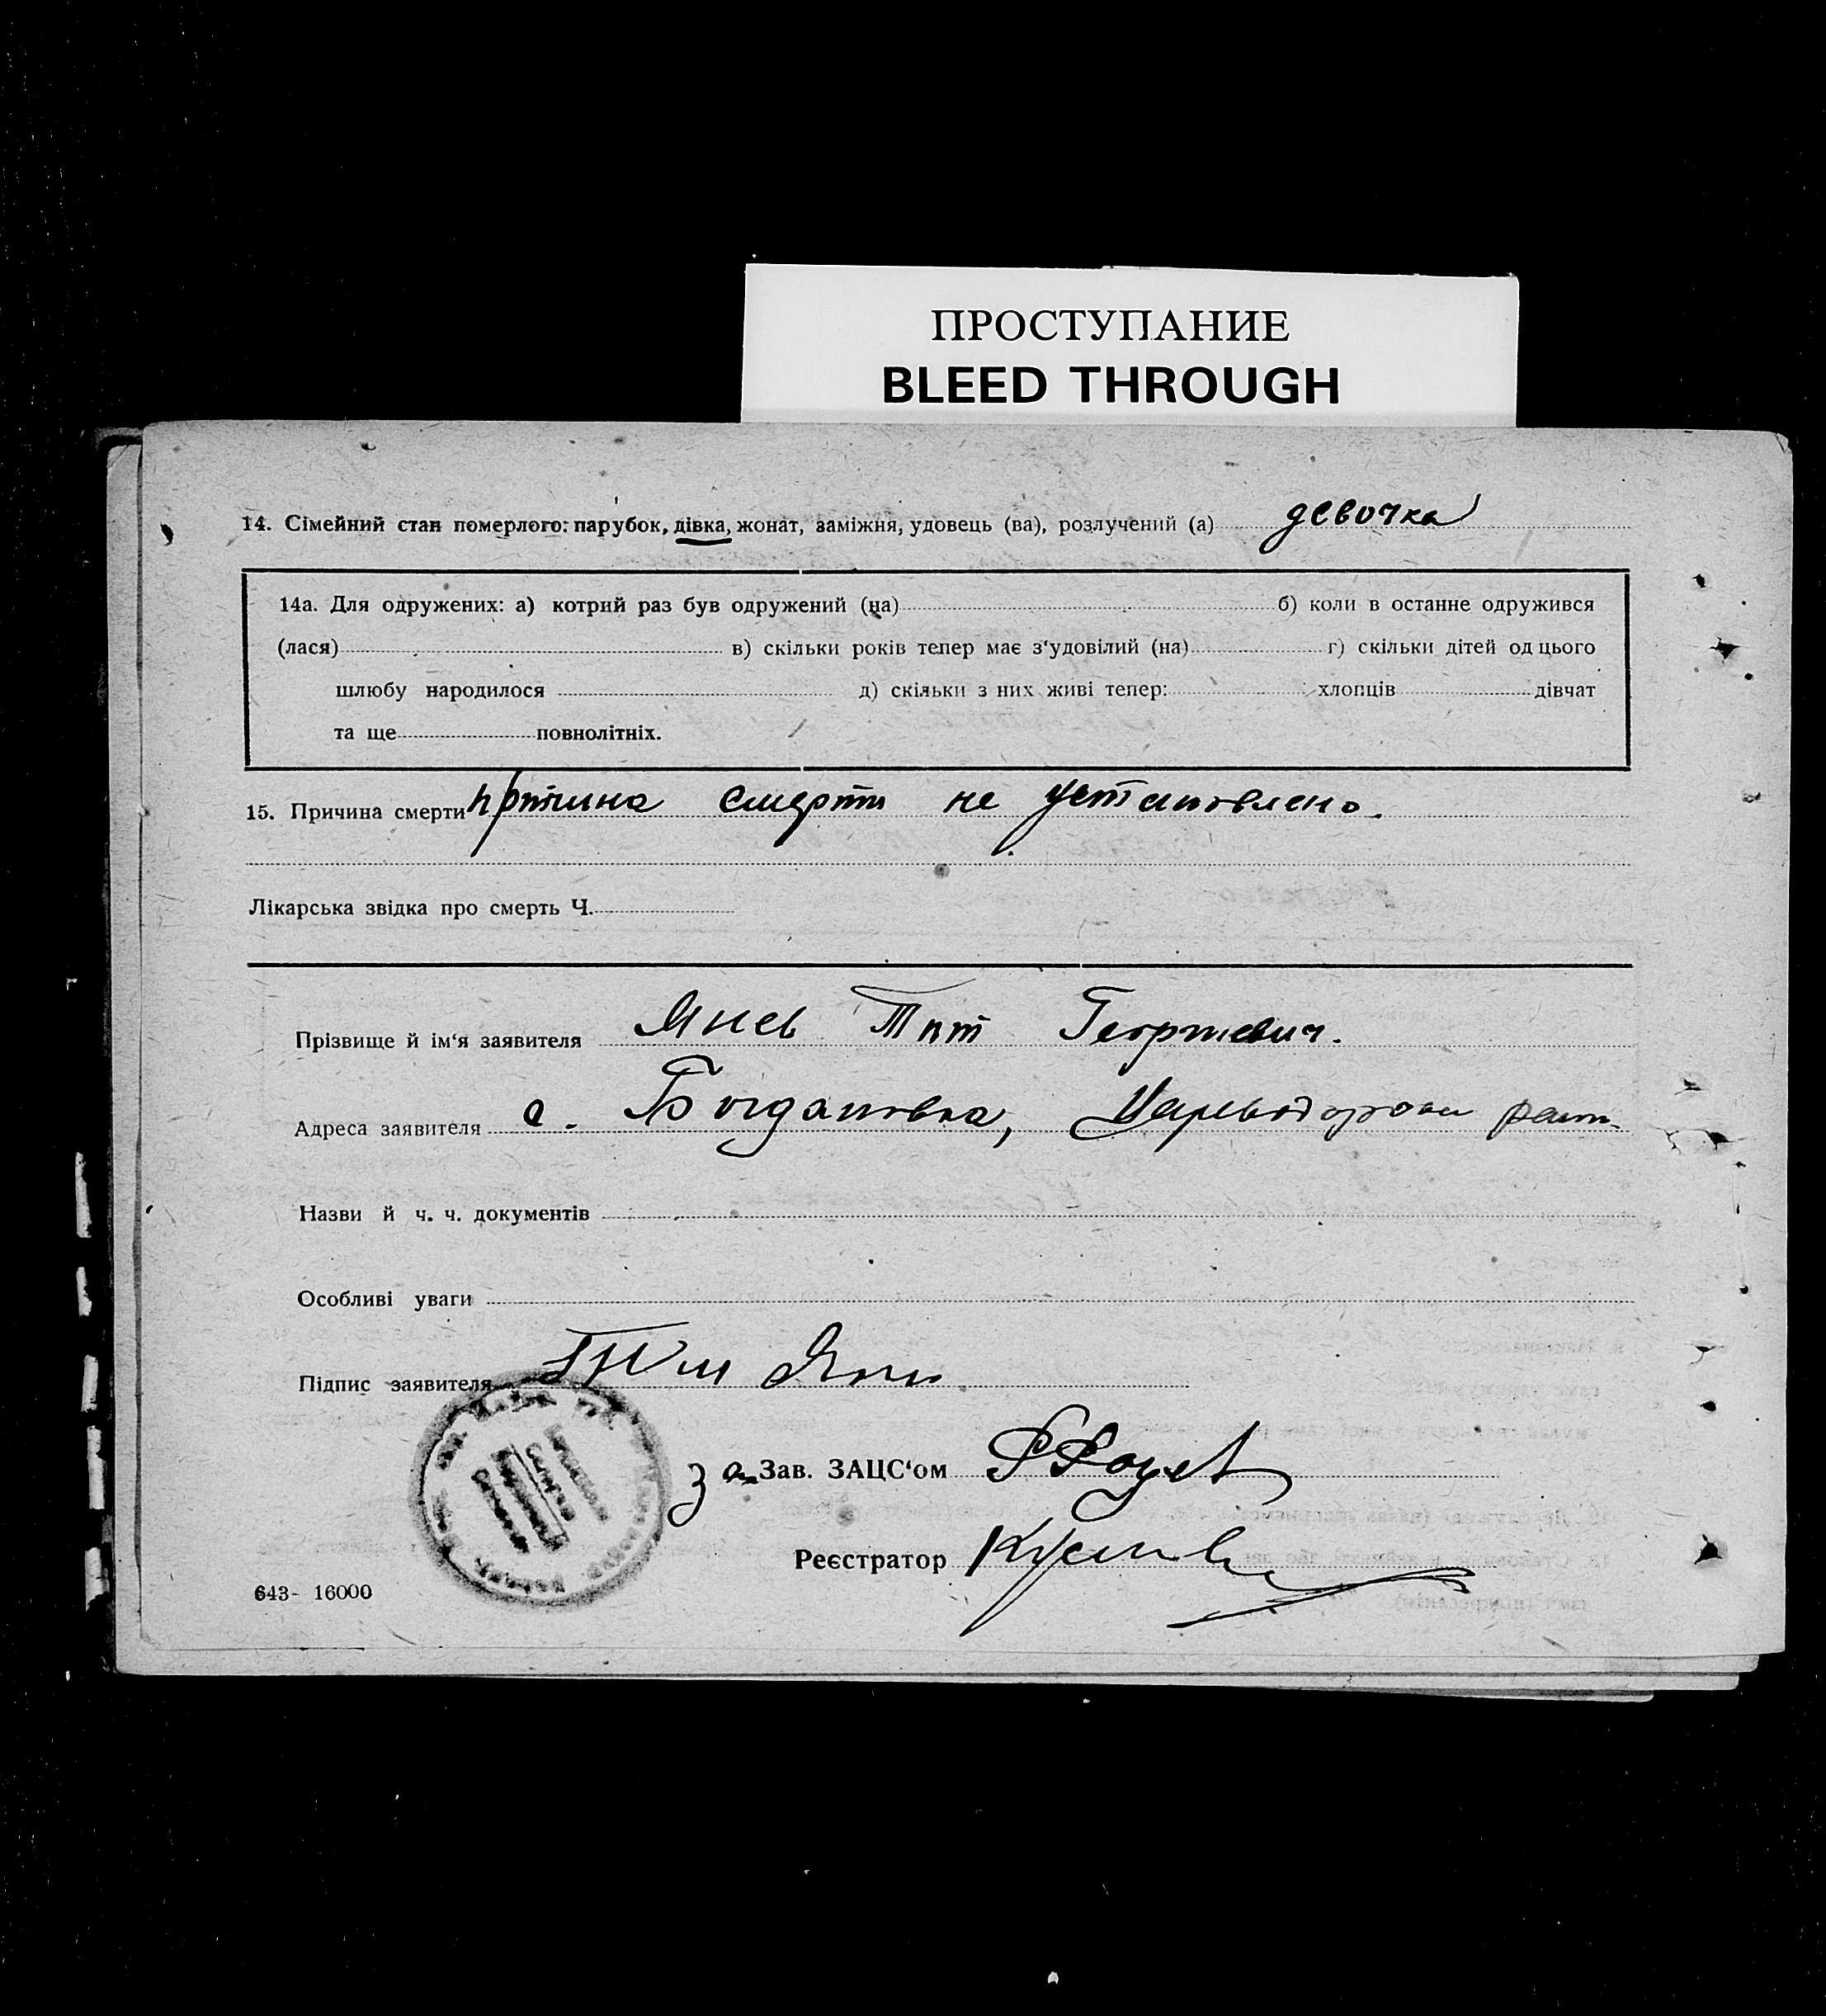 ПРОСТУПАНИЕ
BLEED THROUGH
14. Сімейний стан померлого: парубок, дівка, жонат, заміжня, удовець (ва), розлучений (а) девочка
14а. Для одружених: а) котрий раз був одружений (на) б) коли в останне одружився
(лася) в) скільки років тепер має з‘удовілий (на) г) скільки дітей од цього
шлюбу народилося д) скільки з них живі тепер: хлопців дівчат
та ще повнолітніх.
15. Причина смерти причина смерти не установлено.
Лікарська звідка про смерть Ч.
Прізвище й ім‘я заявителя Янев Георгиевич.
Адреса заявителя с. Богдановка,
Назви й ч. ч. документів
Особливі уваги
Підпис заявителя
за Зав. ЗАЦС‘ом
Реєстратор
643- 16000